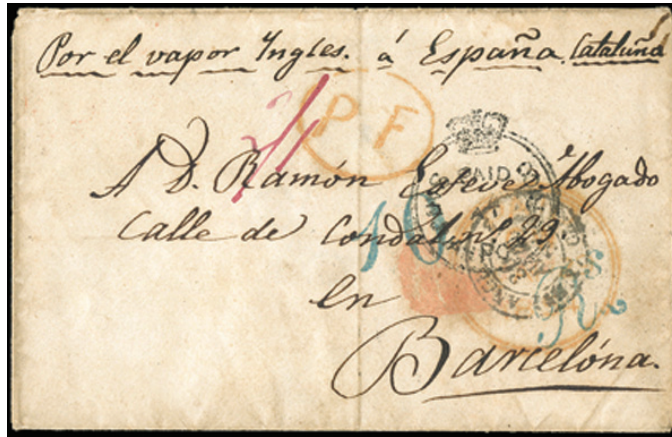 Por el vapor Ingles. á España. Cataluña
P F
A D. Ramón Esteve Abogado
PAID
Calle de Condal nº 29
10 Rs.
en
Barcelóna.